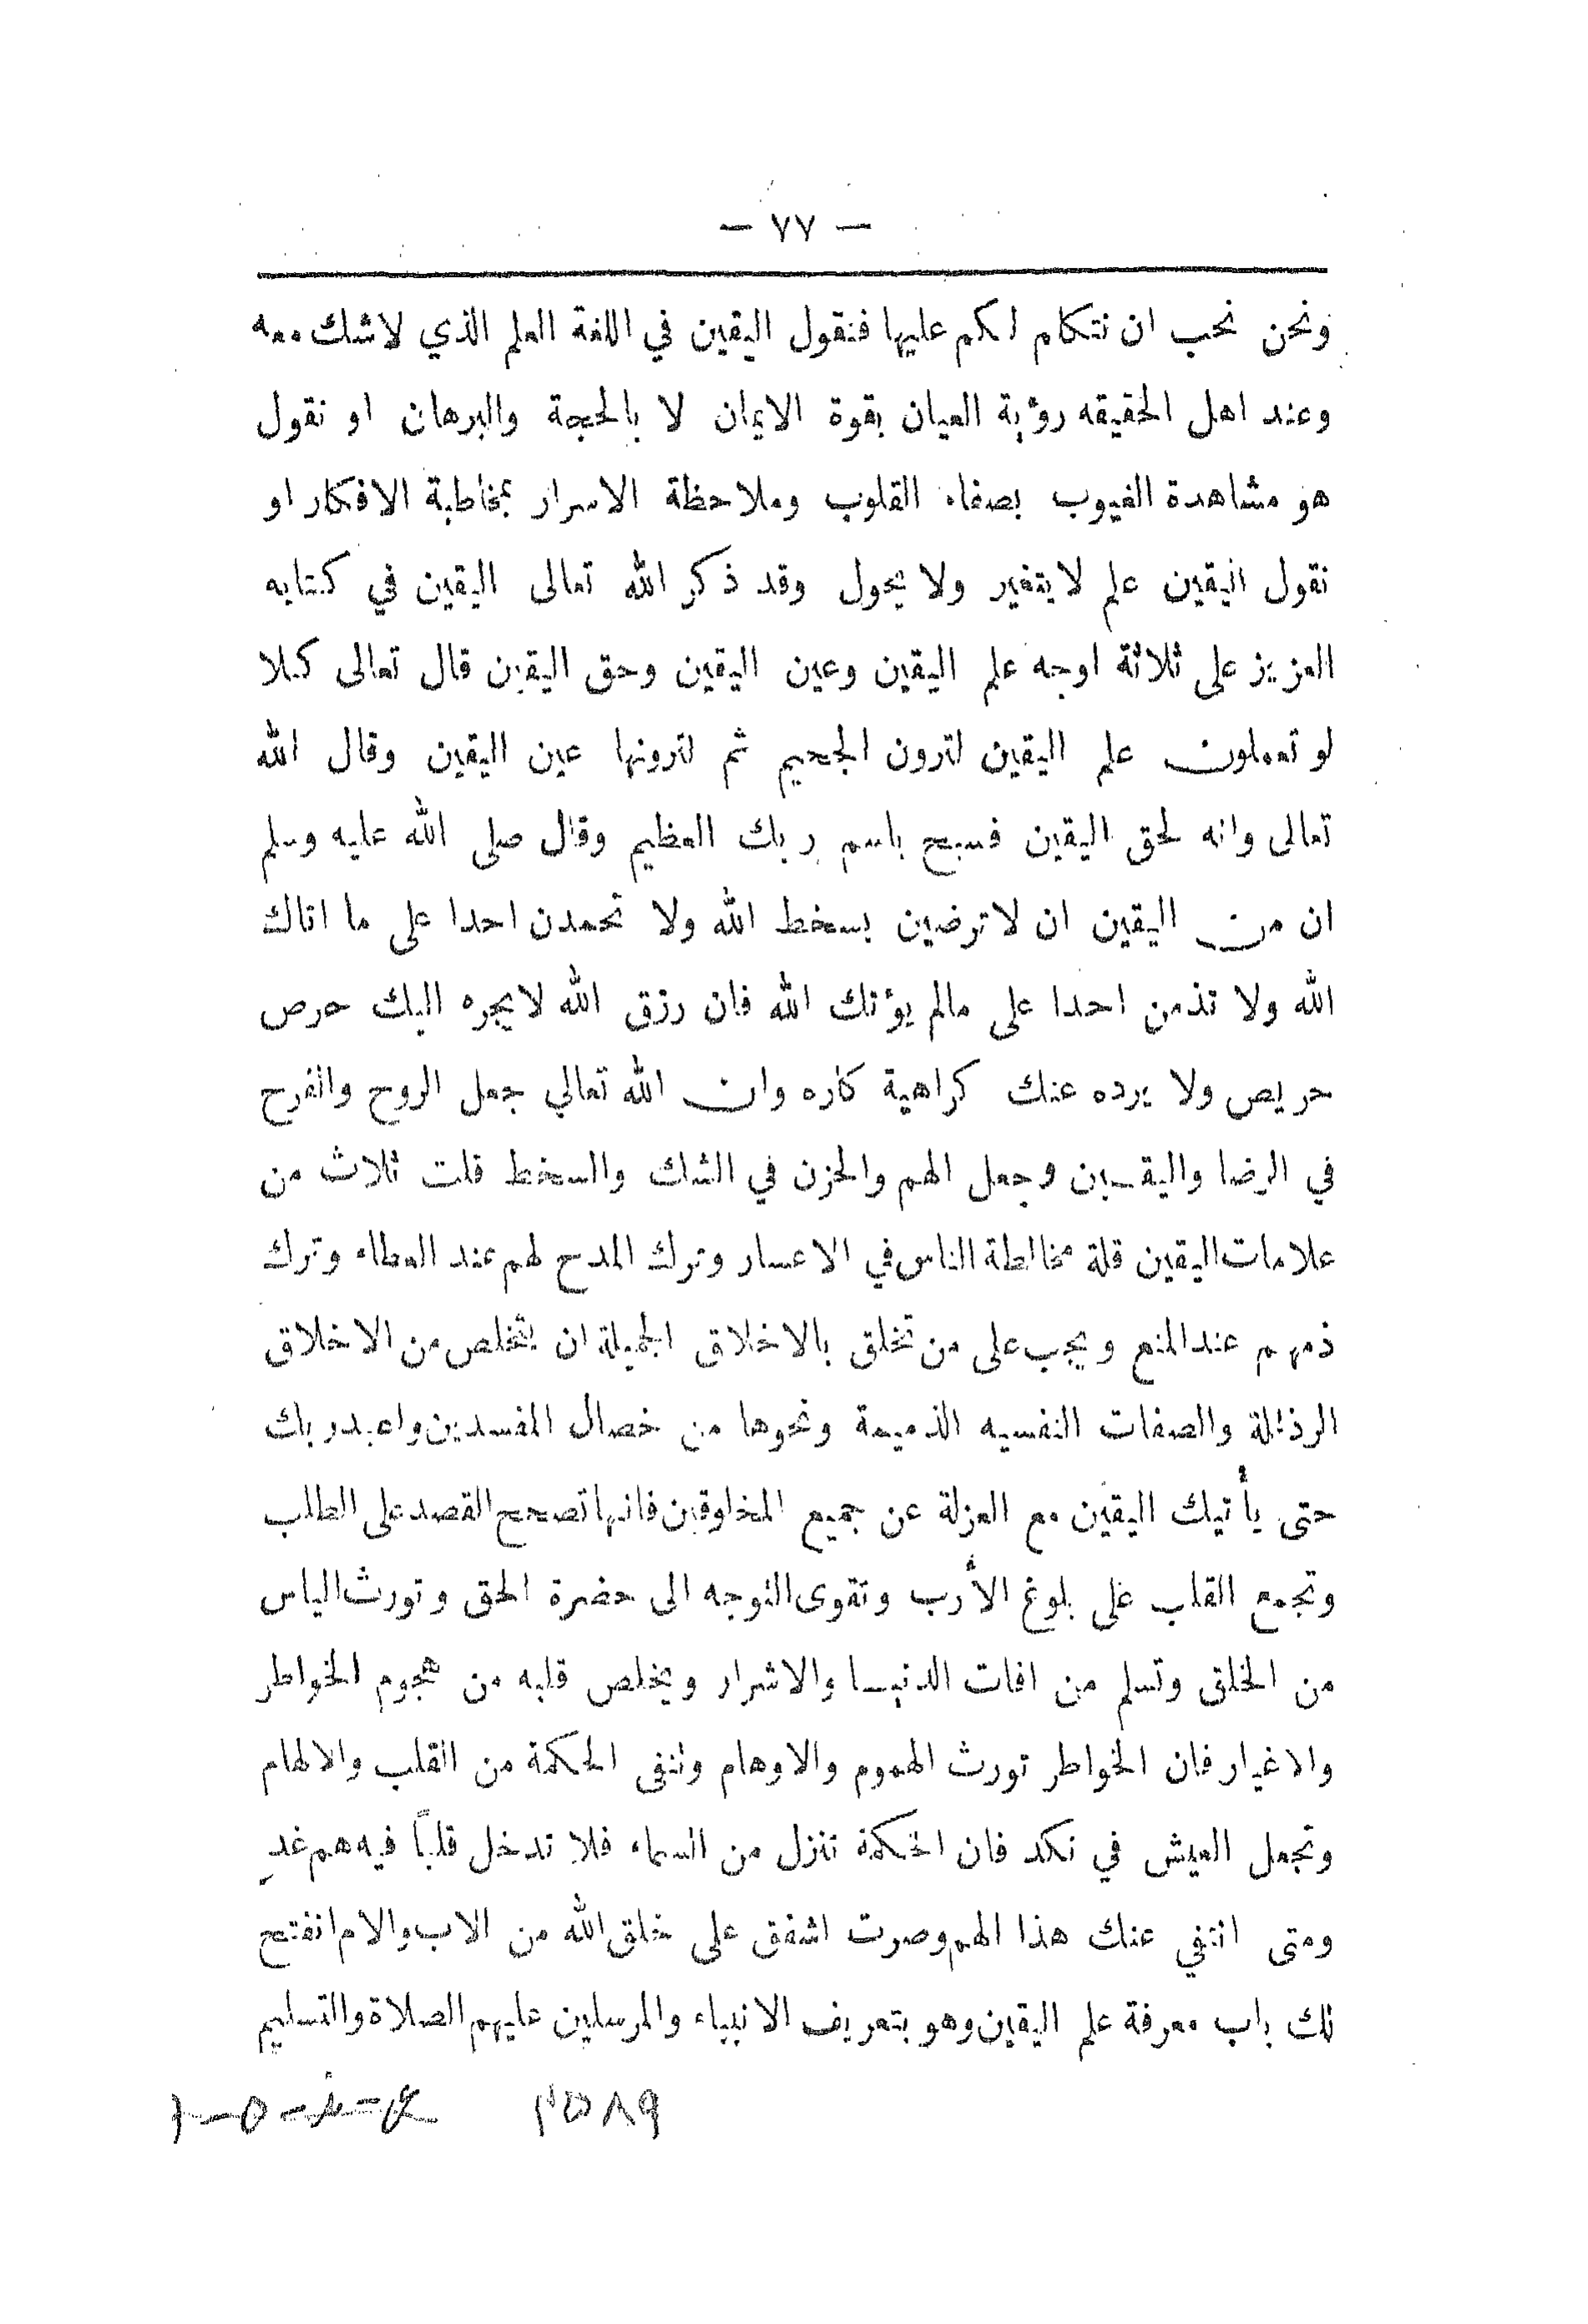 — ٧٧ —
ونحن نحب ان نتكلم لكم عليها فنقول اليقين في اللغة العلم الذي لاشك معه
وعند اهل الحقيقه رؤية العيان بقوة الايمان لا بالحجة والبرهان او نقول
هو مشاهدة الغيوب بصفاء القلوب وملاحظة الاسرار بمخاطبة الافكار او
نقول اليقين علم لايتغير ولا يحول وقد ذكر الله تعالى اليقين في كتابه
العزيز على ثلاثة اوجه علم اليقين وعين اليقين وحق اليقين قال تعالى كلا
لو تعملون علم اليقين لترون الجحيم ثم لترونها عين اليقين وقال الله
تعالى وانه لحق اليقين فسبح باسم ربك العظيم وقال صلى الله عليه وسلم
ان من اليقين ان لاترضين بسخط الله ولا تحمدن احدا على ما اتاك
الله ولا تذمن احدا على مالم يؤتك الله فان رزق الله لايجره اليك حرص
حريص ولا يرده عنك كراهية كاره وان الله تعالي جعل الروح والفرح
في الرضا واليقين وجعل الهم والحزن في الشك والسخط قلت ثلاث من
علامات اليقين قلة مخالطة الناس في الاعسار وترك المدح لهم عند العطاء وترك
ذمهم عند المنع ويجب على من تخلق بالاخلاق الجميلة ان يتخلص من الاخلاق
الرذئلة والصفات النفسيه الذميمة ونحوها من خصال المفسدين واعبد ربك
حتى يأتيك اليقين مع العزلة عن جميع المخلوقين فانها تصحح القصد على الطلب
وتجمع القلب على بلوغ الأرب وتقوى التوجه الى حضرة الحق وتورث الياس
من الخلق وتسلم من افات الدنيا والاشرار ويخلص قلبه من هجوم الخواطر
والاغيار فان الخواطر تورث الهموم والاوهام وتنفى الحكمة من القلب والالهام
وتجعل العيش في نكد فان الحكمة تنزل من السماء فلا تدخل قلباً فيه هم غدٍ
ومتى انتفي عنك هذا الهم وصرت اشفق على خلق الله من الاب والام انفتح
لك باب معرفة علم اليقين وهو بتعريف الانبياء والمرسلين عليهم الصلاة والتسليم